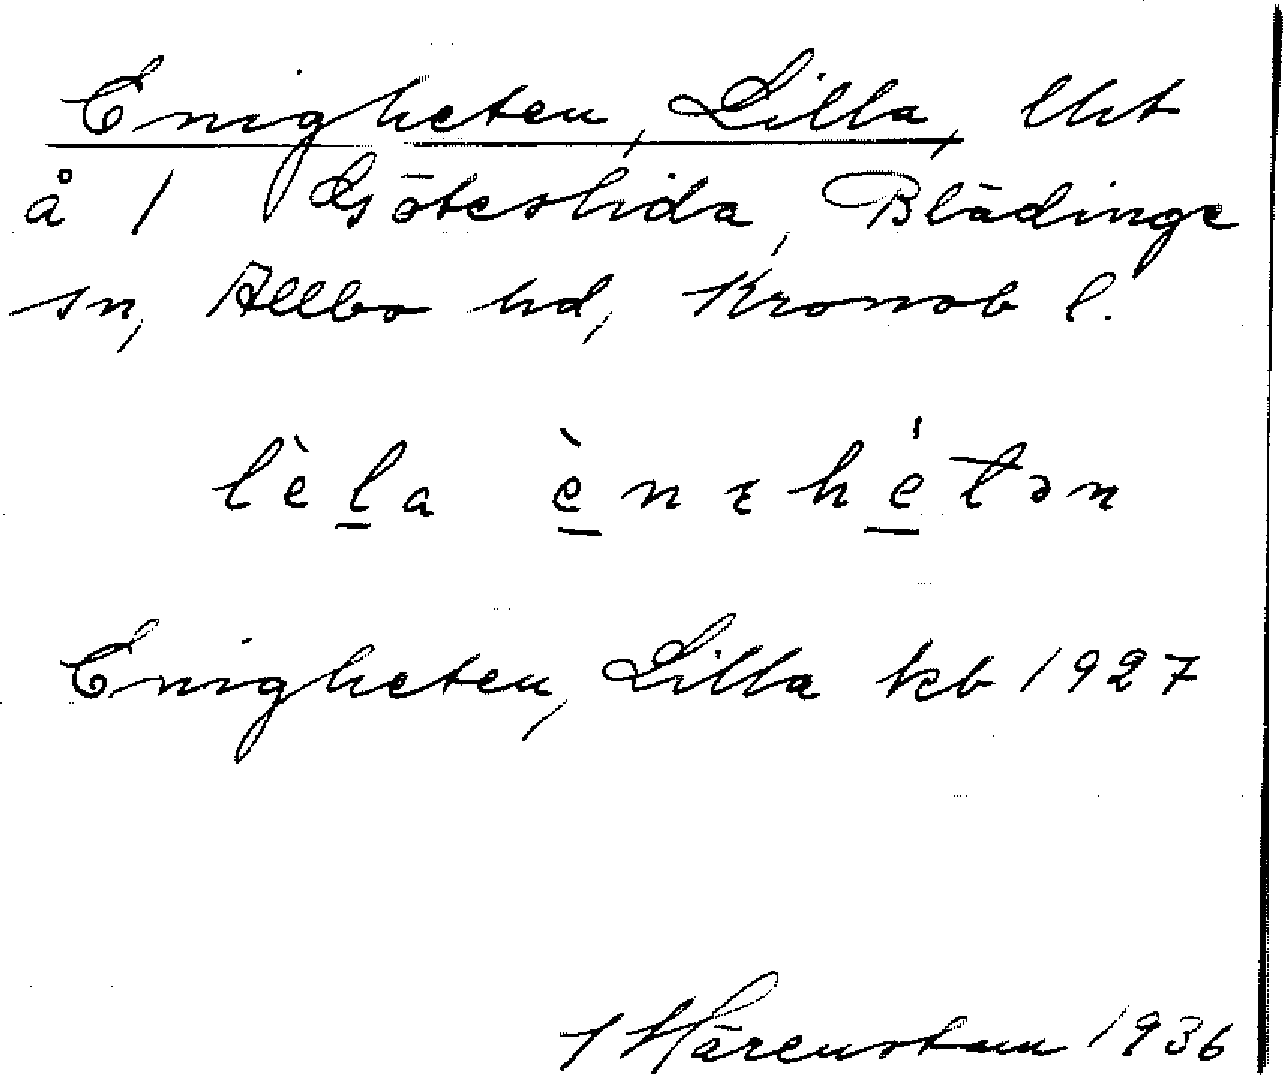 Enigheten, Lilla, lht
å 1 Göteshida, Blädinge
sn, Allbo hd, Kronob l.
lèla ènɛhétən
Enigheten, Lilla kb 1927
Härenstam 1936